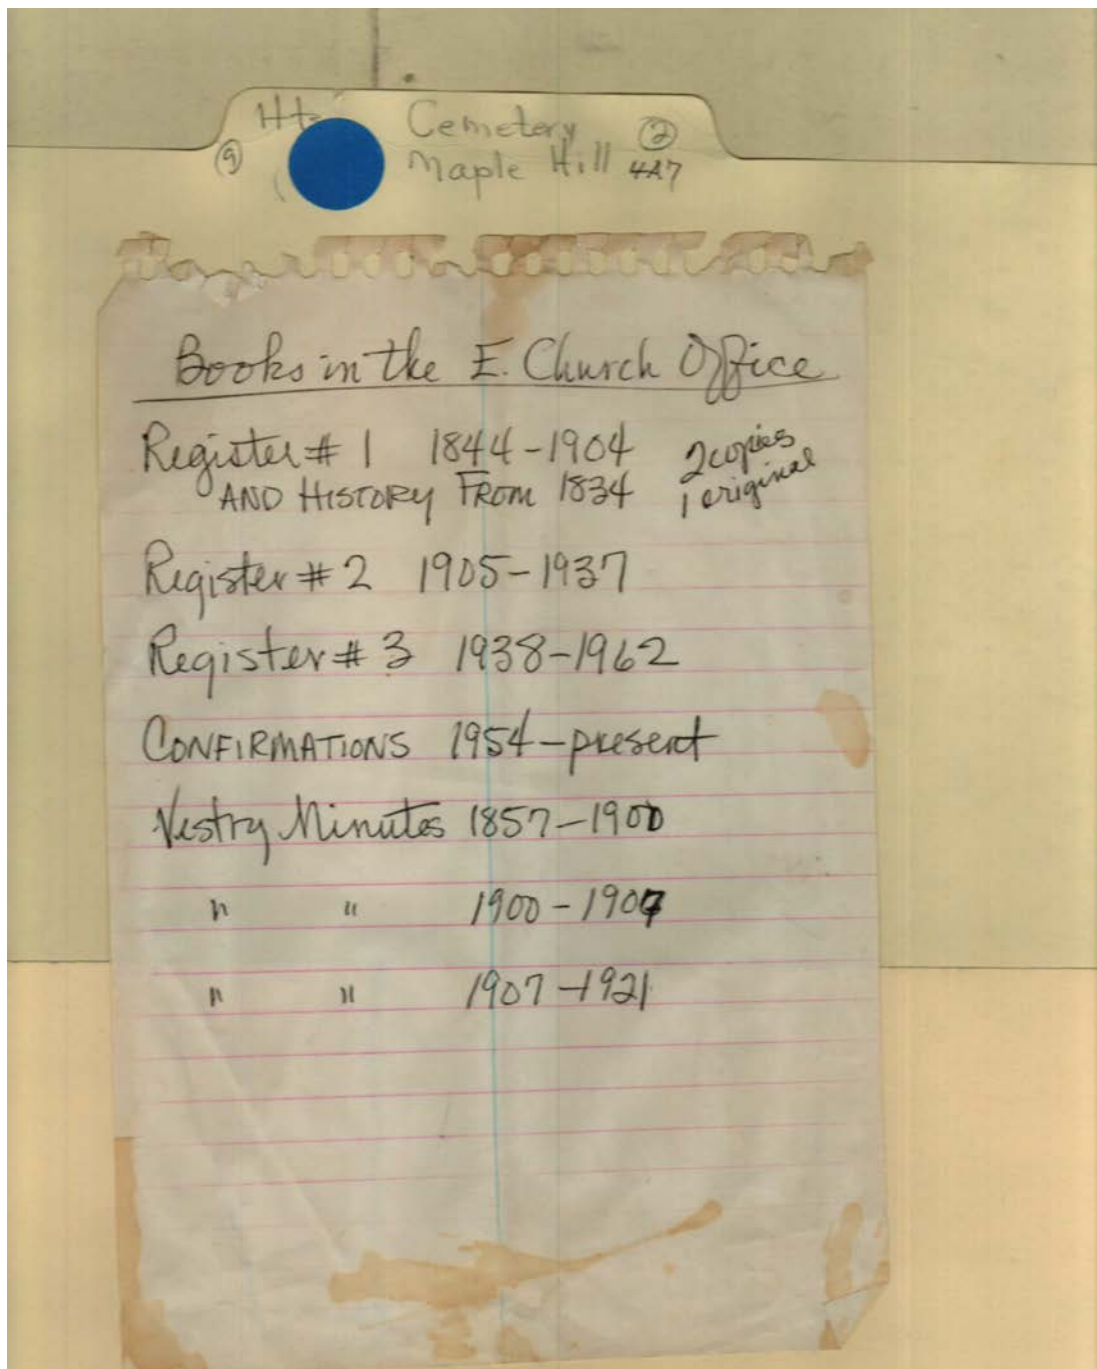 Cemetery ②
⑨ Maple Hill 4A7
Books in the E. Church Office
Register # 1 1844-1904 2 copies
AND HISTORY FROM 1834 1 original
Register # 2 1905-1937
Register # 3 1938-1962
CONFIRMATIONS 1954-present
Vestry Minutes 1857-1900
" " 1900-1907
" " 1907-1921